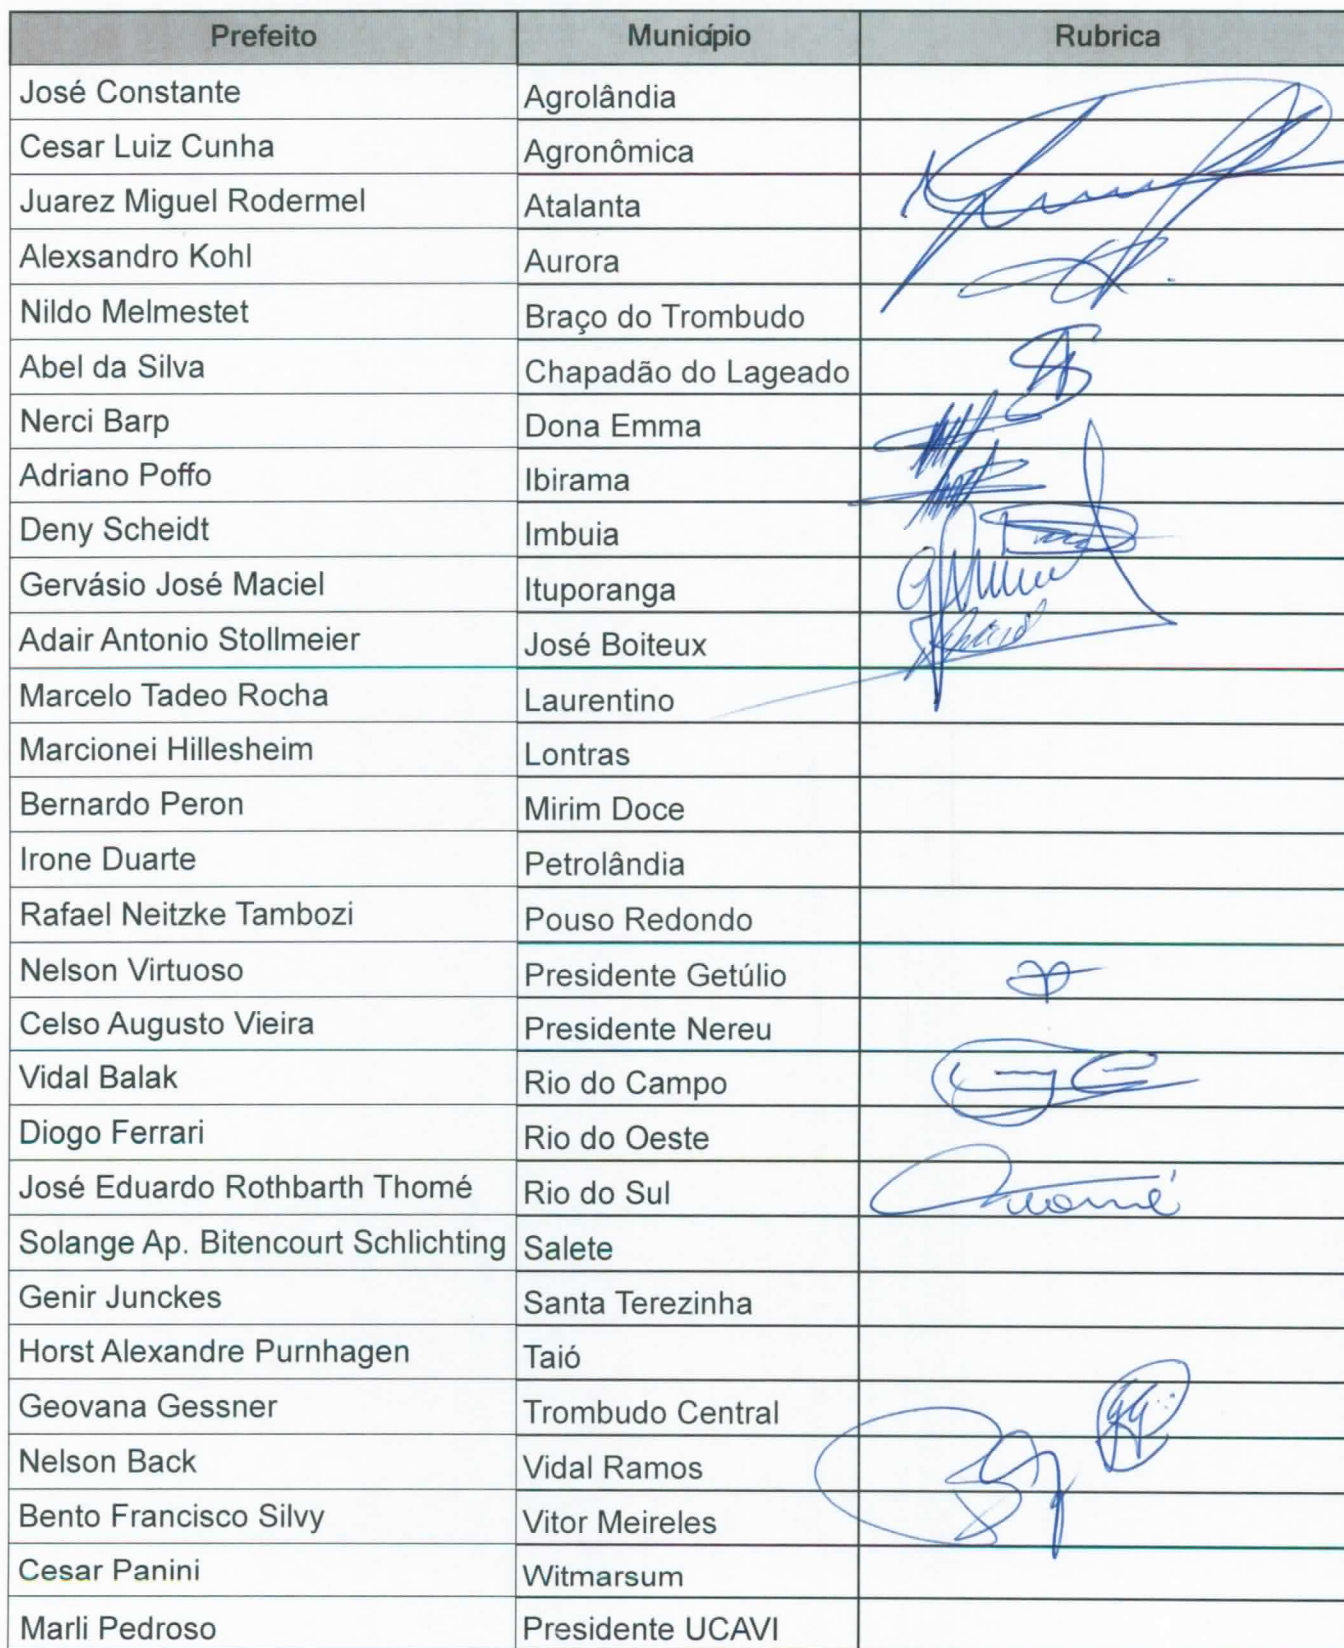 Prefeito Município Rubrica
José Constante Agrolândia
Cesar Luiz Cunha Agronômica
Juarez Miguel Rodermel Atalanta
Alexsandro Kohl Aurora
Nildo Melmestet Braço do Trombudo
Abel da Silva Chapadão do Lageado
Nerci Barp Dona Emma
Adriano Poffo Ibirama
Deny Scheidt Imbuia
Gervásio José Maciel Ituporanga
Adair Antonio Stollmeier José Boiteux
Marcelo Tadeo Rocha Laurentino
Marcionei Hillesheim Lontras
Bernardo Peron Mirim Doce
Irone Duarte Petrolândia
Rafael Neitzke Tambozi Pouso Redondo
Nelson Virtuoso Presidente Getúlio
Celso Augusto Vieira Presidente Nereu
Vidal Balak Rio do Campo
Diogo Ferrari Rio do Oeste
José Eduardo Rothbarth Thomé Rio do Sul Thomé
Solange Ap. Bitencourt Schlichting Salete
Genir Junckes Santa Terezinha
Horst Alexandre Purnhagen Taió
Geovana Gessner Trombudo Central
Nelson Back Vidal Ramos
Bento Francisco Silvy Vitor Meireles
Cesar Panini Witmarsum
Marli Pedroso Presidente UCAVI